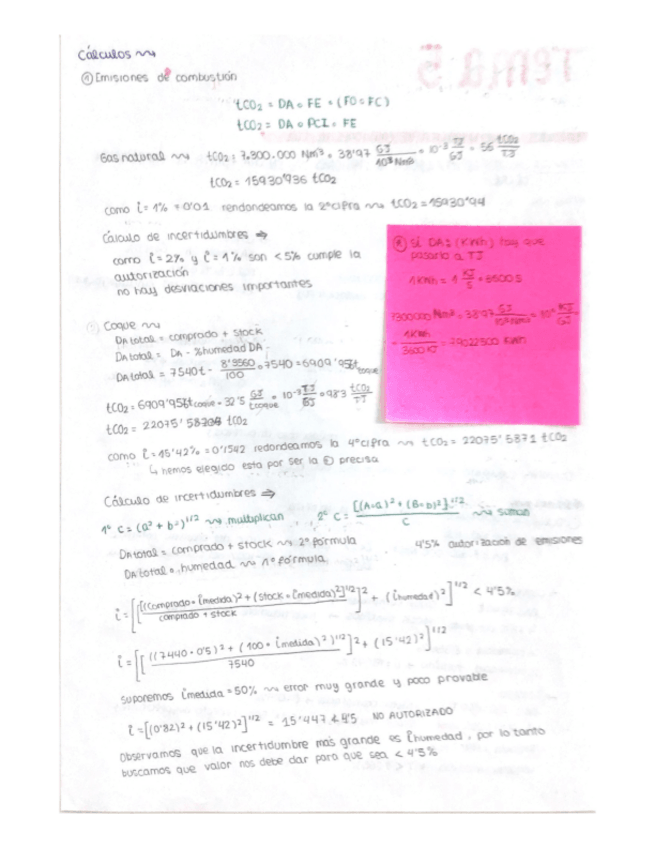 Cálculos
① Emisiones de combustión
tCO2 = DA · FE · (FO o FC)
tCO2 = DA · PCI · FE
Gas natural ⇝ tCO2 = 7.300.000 Nm³ · 38'97 GJ/10³Nm³ · 10⁻³ TJ/GJ · 56 tCO2/TJ
tCO2 = 15930'936 tCO2
como i = 1% = 0'01 rendondeamos la 2ª cifra ⇝ tCO2 = 15930'94
Cálculo de incertidumbres ⇒
como i = 2% y i = 1% son < 5% cumple la
autorización
no hay desviaciones importantes
Si DA = (KWh) hay que
pasarlo a TJ
1 KWh = 1 KJ/S
7300000 Nm³ · 38'97 GJ/10³Nm³
1KWh/3600 KJ = 79022500 KWh
Coque ⇝
DA total = comprado + stock
DA total = DA - %humedad DA
DA total = 7540t - 8'3560/100 · 7540 = 6909'956t coque
tCO2 = 6909'956t coque · 32'5 GJ/tcoque · 10⁻³ TJ/GJ · 98'3 tCO2/TJ
tCO2 = 22075'58708 tCO2
como i = 15'42% = 0'1542 redondeamos la 4ª cifra ⇝ tCO2 = 22075'5871 tCO2
↳ hemos elegido esta por ser la ⊕ precisa
Cálculo de incertidumbres ⇒
1ª C = (a² + b²)^1/2 ⇝ multiplican 2ª C = [(A·a)² + (B·b)²]^1/2 / C ⇝ suman
DA total = comprado + stock ⇝ 2ª fórmula 4'5% autorización de emisiones
DA total · humedad ⇝ 1ª fórmula
i = [[[(comprado · imedida)² + (stock · imedida)²]^1/2 / comprado + stock]² + (ihumedad)²]^1/2 < 4'5%
i = [[((7440 · 0'5)² + (100 · imedida)²)^1/2 / 7540]² + (15'42)²]^1/2
suponemos imedida = 50% ⇝ error muy grande y poco provable
i = [(0'82)² + (15'42)²]^1/2 = 15'447 ≮ 4'5 NO AUTORIZADO
Observamos que la incertidumbre más grande es ihumedad, por lo tanto
buscamos que valor nos debe dar para que sea < 4'5%